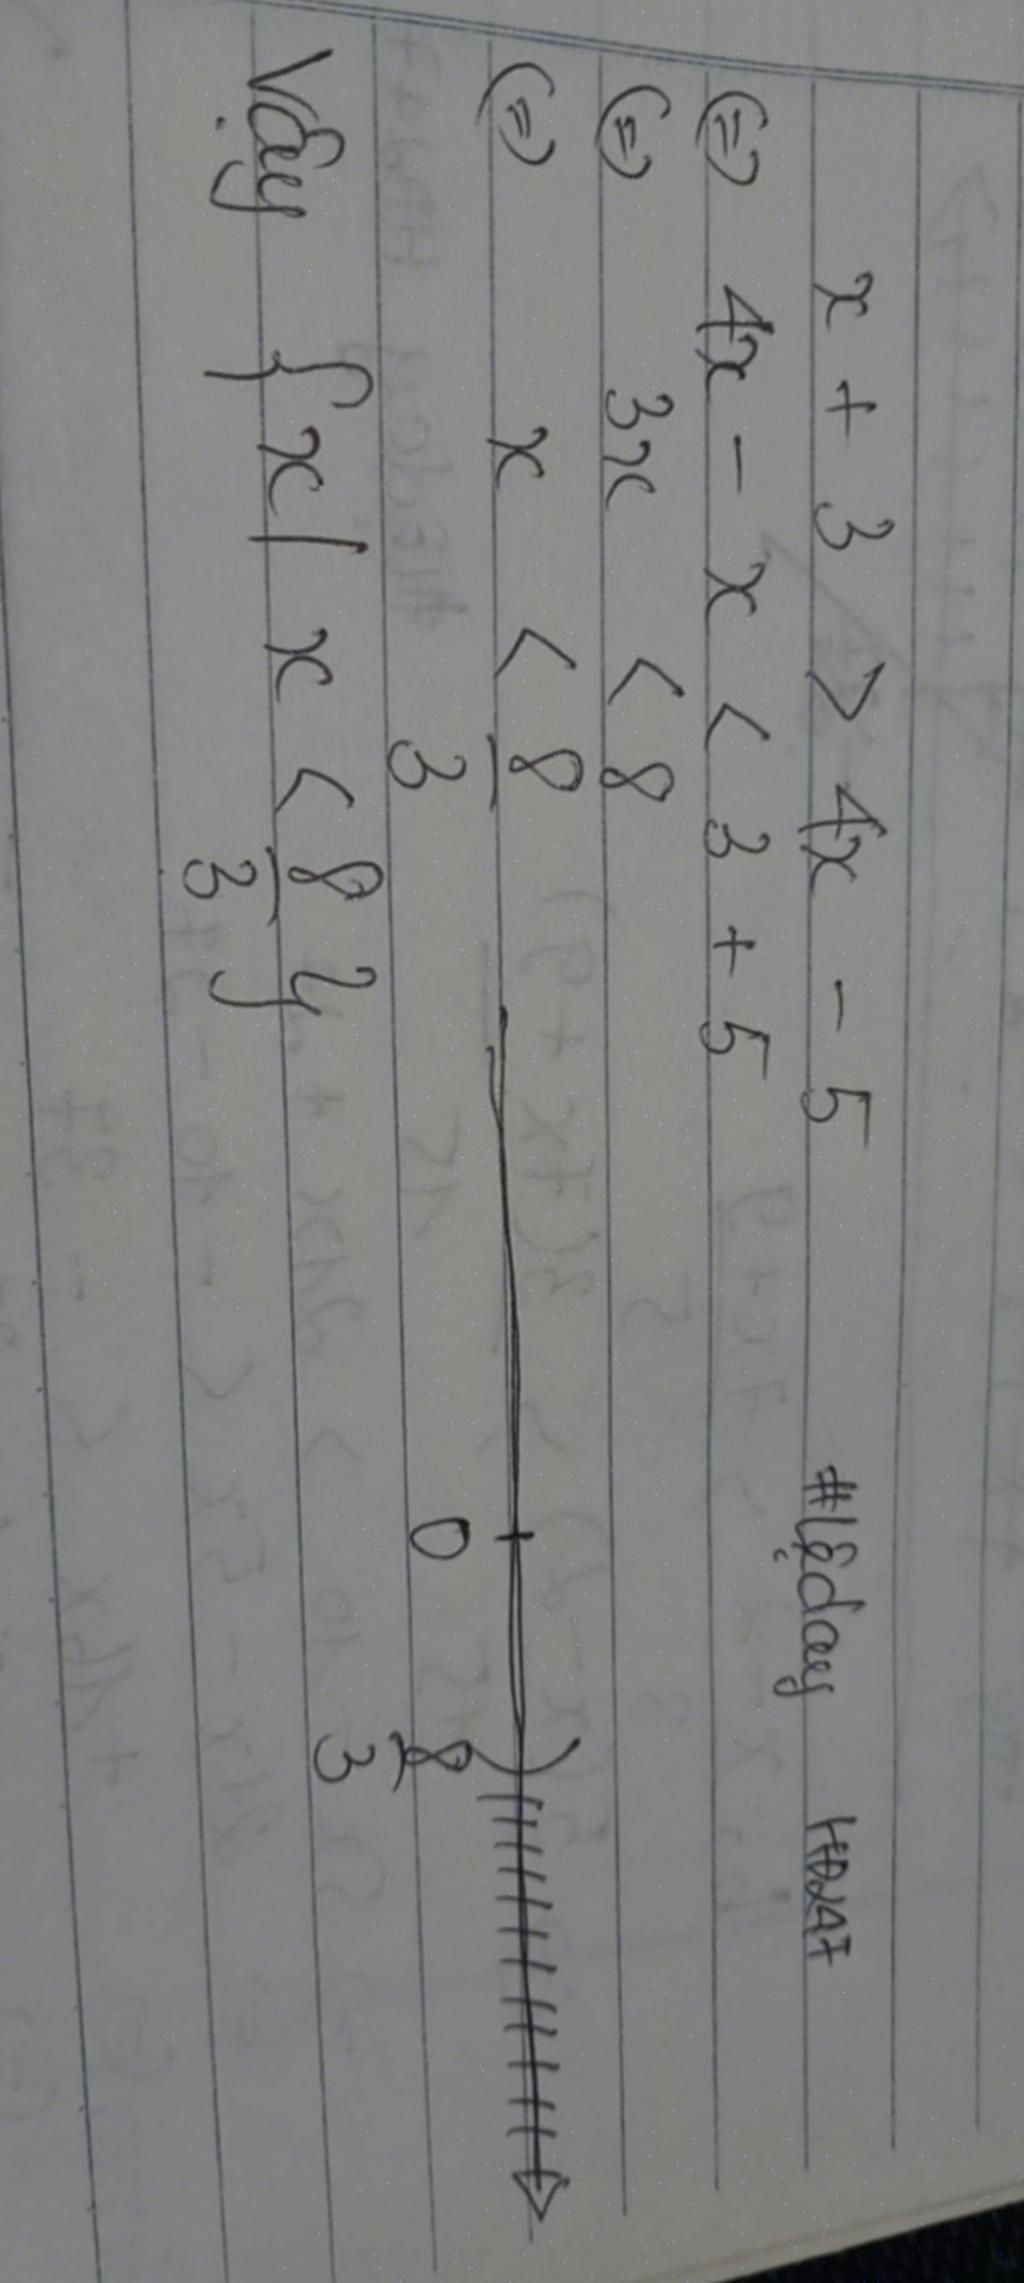 x + 3 > 4x - 5 #lêday
(=) 4x - x < 3 + 5
(=) 3x < 8
(=) x < 8/3
0 8/3
Vậy {x | x < 8/3}